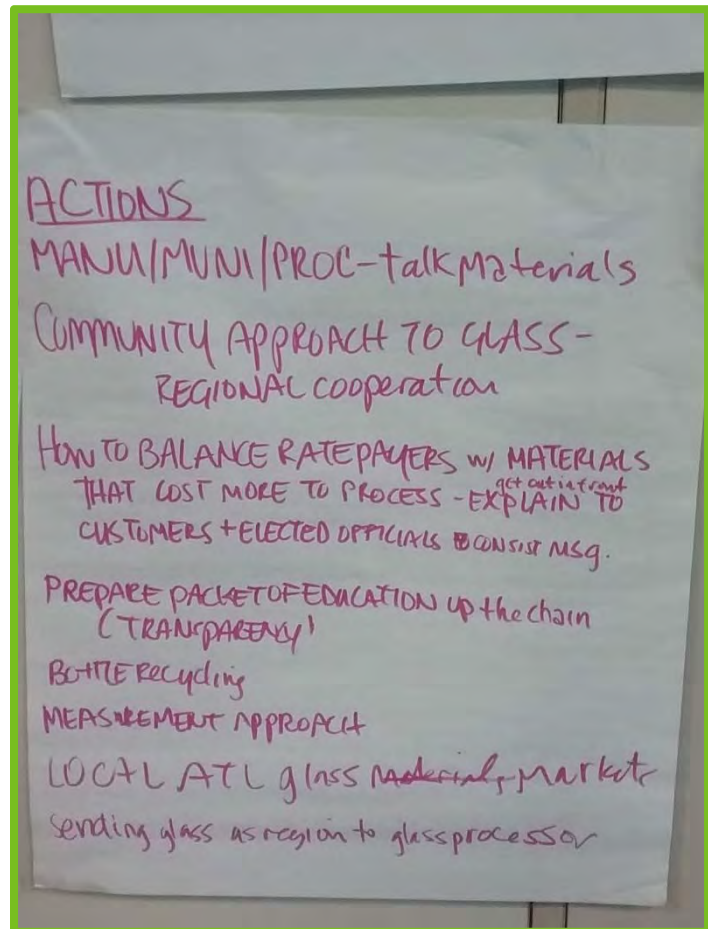 ACTIONS
MANU/MUNI/PROC-talk Materials
COMMUNITY APPROACH TO GLASS-
REGIONAL cooperation
HOW TO BALANCE RATEPAYERS w/ MATERIALS
get out in front
THAT COST MORE TO PROCESS - EXPLAIN TO
CUSTOMERS + ELECTED OFFICIALS CONSIST MSg.
PREPARE PACKET OF EDUCATION up the chain
(TRANSPARENCY)
BOTTLE Recycling
MEASUREMENT APPROACH
LOCAL ATL glass Materials Markets
Sending glass as region to glass processor